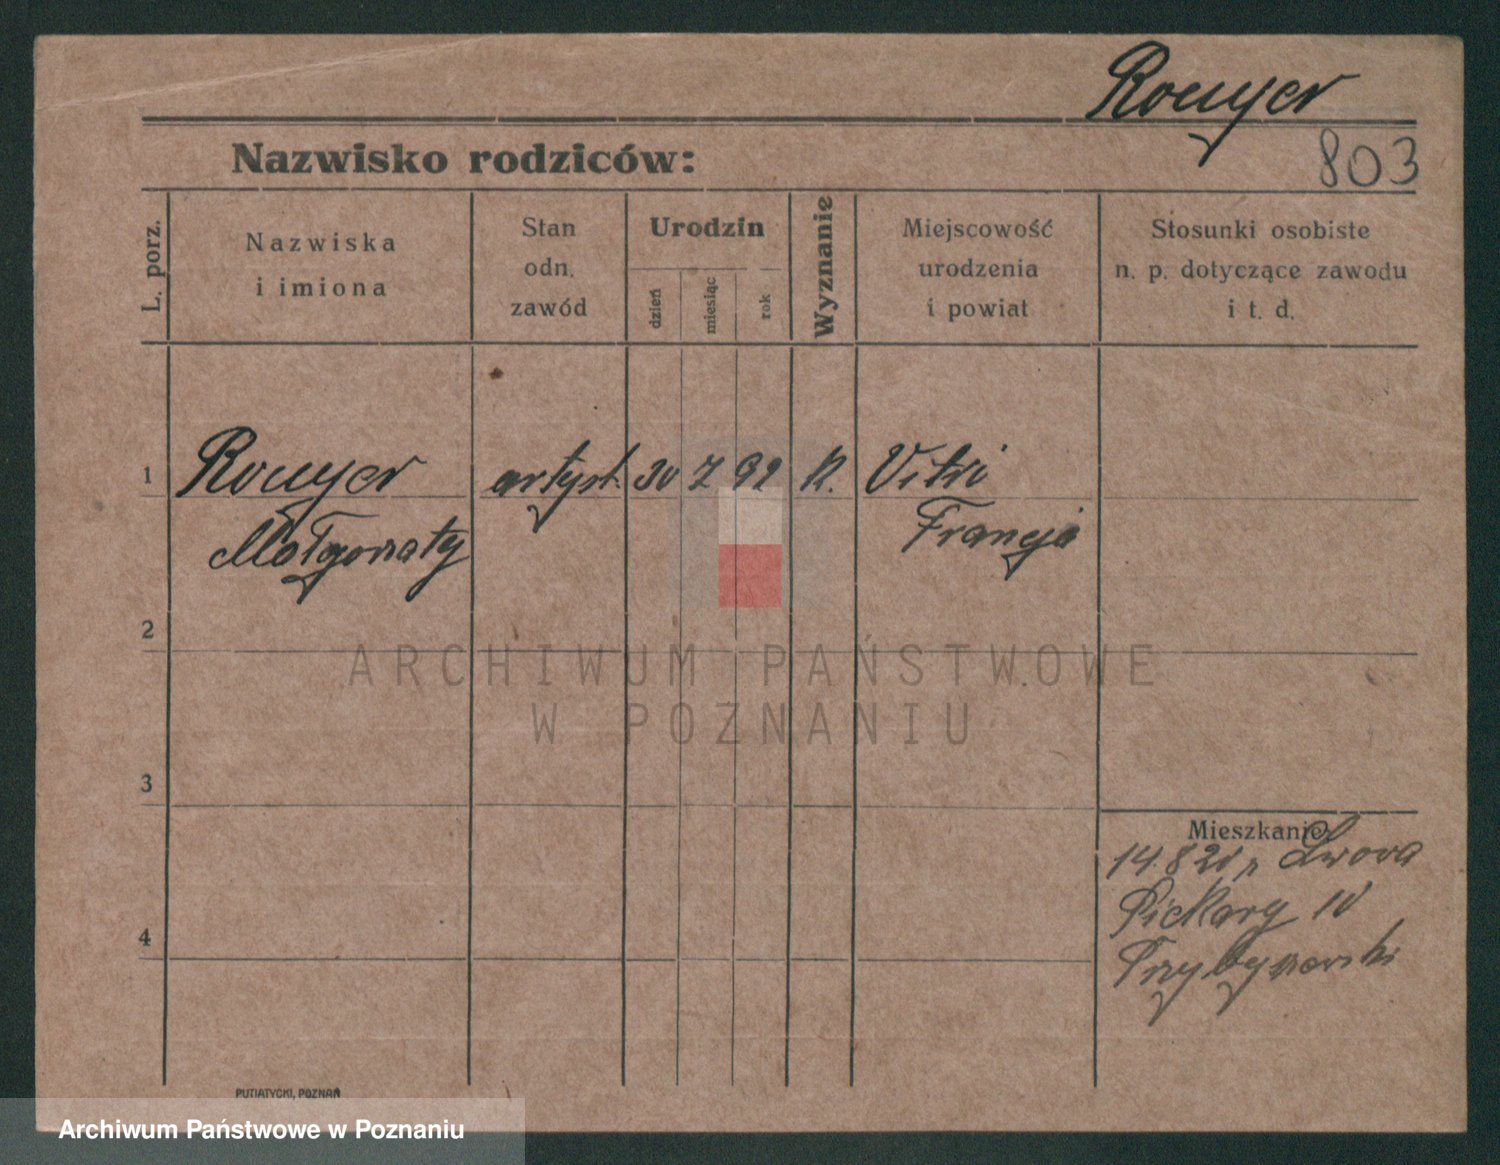 Rouyer
Nazwisko rodziców:
803
L. porz.
Nazwiska
i imiona
Stan
odn.
zawód
Urodzin
dzień
miesiąc
rok
Wyznanie
Miejscowość
urodzenia
i powiat
Stosunki osobiste
n. p. dotyczące zawodu
i t. d.
1
Rouyer
artyst.
30
7
92
K.
Vitri
Małgorzaty
Francja
2
ARCHIWUM PAŃSTWOWE
W POZNANIU
3
Mieszkanie
14.8 Lwowa
Piekary
4
Przybyszewski
PUTIATYCKI, POZNAŃ
Archiwum Państwowe w Poznaniu